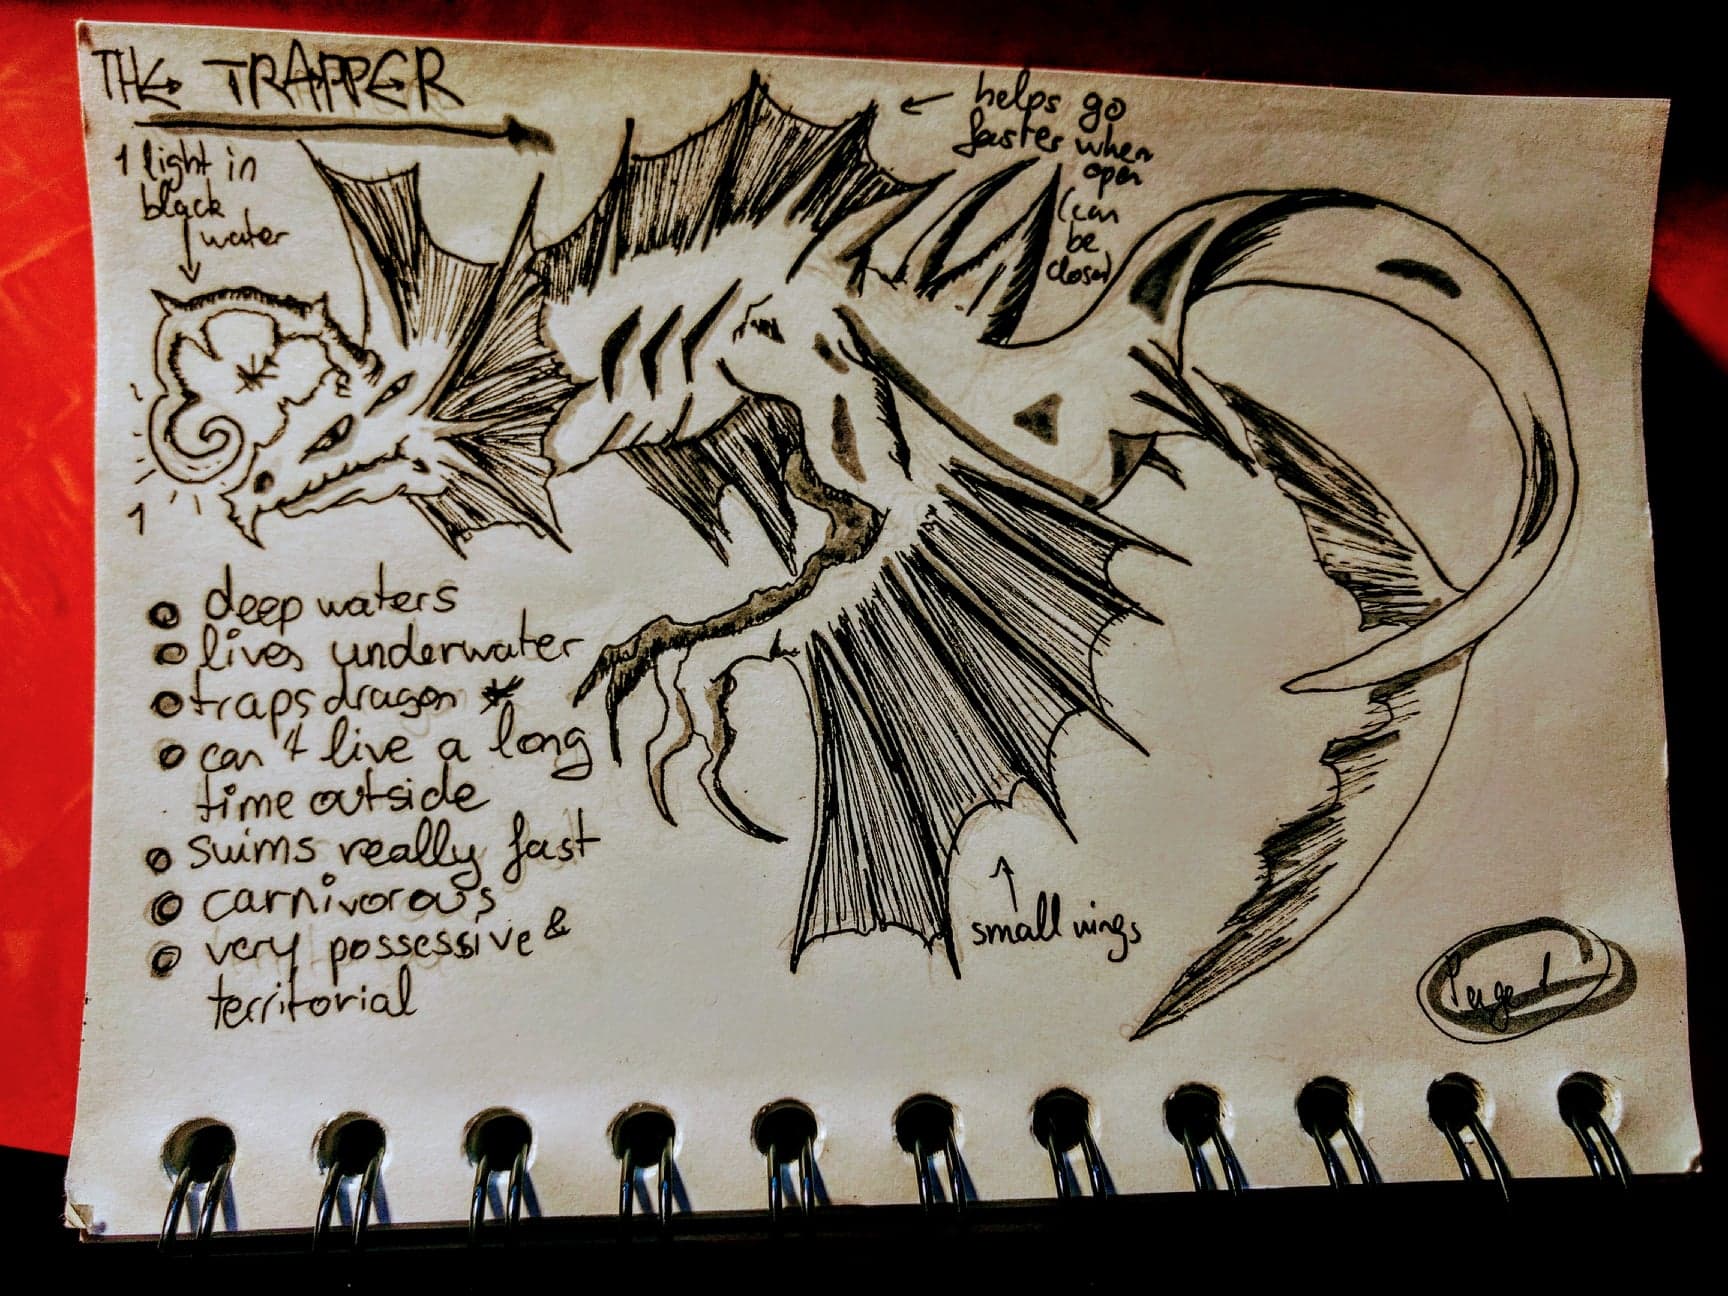 THE TRAPPER
1 light in
black
water
helps go
faster when
open
(can
be
closed)
1
deep waters
lives underwater
traps dragon *
can't live a long
time outside
swims really fast
carnivorous
very possessive &
territorial
small wings